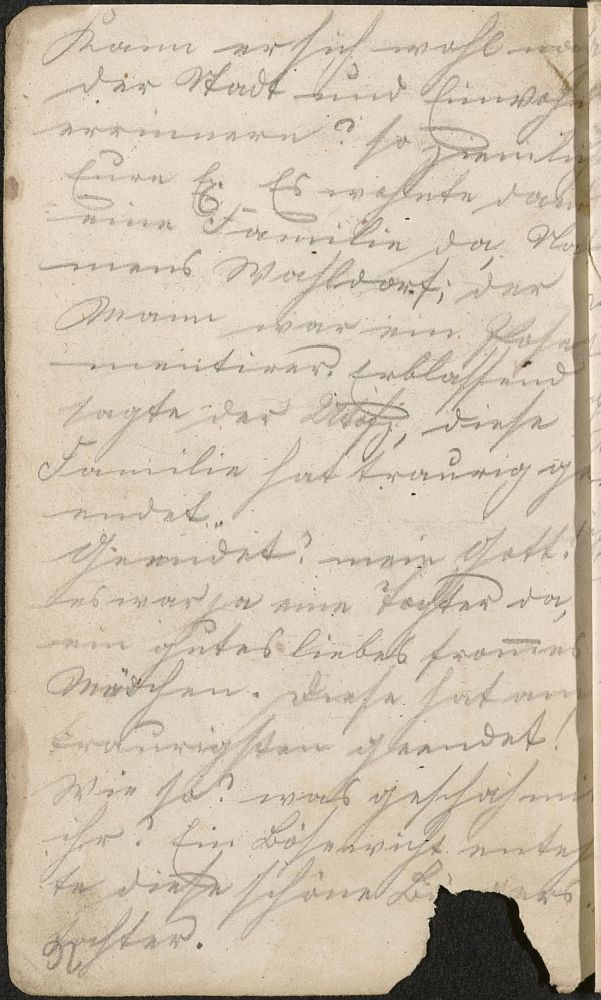 Kann er sich wohl noch
der Stadt und Einwohn
errinnern? so ziemlich
Eure E. Es wohnte dan
eine Familie da, Na
mens Wahldorf; der
Mann war ein Posa
mentirer. Erblassend
sagte der diese
Familie hat traurig ge
endet.
Geendet? mein Gott!
es war ja eine Tochter da,
ein gutes liebes from̅es
Mädchen. Diese hat am
traurigsten geendet!
Wie so? was geschah mi
ihr? Ein Bösewicht enteh
te diese schöne Bü gers
tochter.